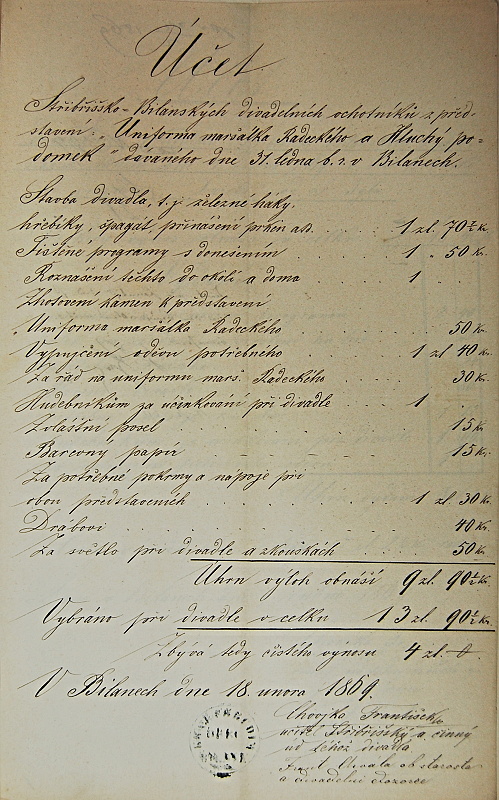 Účet
Stříbřišsko-Bilanských divadelních ochotníků z před-
stavení: „Uniforma maršálka Radeckého a Hluchý po-
domek" dávaného dne 31. ledna b. r. v Bilanech.
Stavba divadla, t. j. železné háky,
hřebíky, špagát, přinášení prken atd. 1 zl. 70½ Kr.
Tištěné programy s donesením 1 „ 50 Kr.
Roznášení těchto do okolí a doma 1
Zhotovení kamen k představení
„Uniforma maršálka Radeckého 50 Kr.
Vypujčení oděvu potřebného 1 zl 40 Kr.
Za řád na uniformu marš. Radeckého 30 Kr.
Hudebníkům za učinkování při divadle 1
Zvláštní posel 15 Kr.
Barevný papír 15 Kr.
Za potřebné pokrmy a nápoje při
obou představeních 1 zl. 30 Kr.
Drábovi 40 Kr.
Za světlo při divadle a zkouškách 50 Kr.
Uhrn výloh obnáší 9 zl. 90½ Kr.
Vybráno při divadle v celku 13 zl. 90½ Kr.
Zbývá tedy čistého výnosu 4 zl.
V Bilanech dne 18. unora 1869.
Chvojka František
učitel Stříbřišský a činný
ud téhož divadla
Chvála ob. starosta
a divadelní dozorce